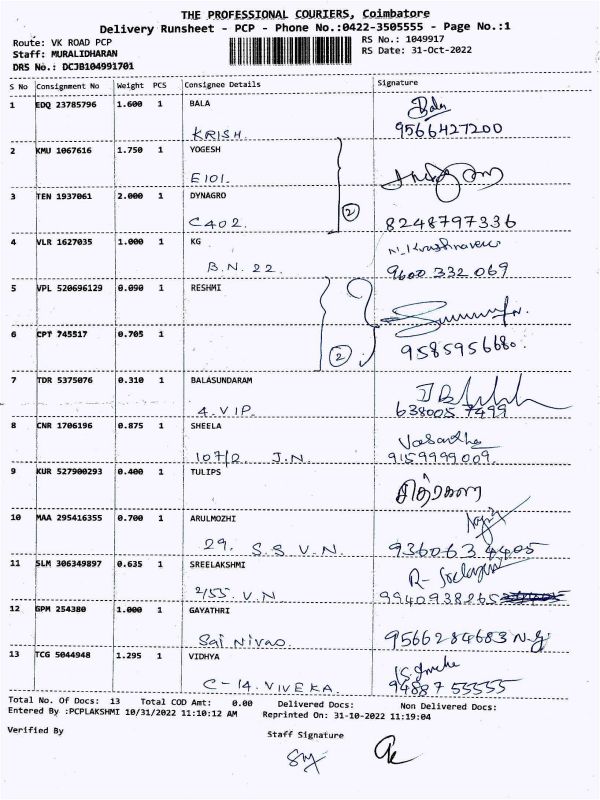 THE PROFESSIONAL COURIERS, Coimbatore
Delivery Runsheet - PCP - Phone No.:0422-3505555 - Page No.:1
Route: VK ROAD PCP
RS No.: 1049917
Staff: MURALIDHARAN
RS Date: 31-Oct-2022
DRS No.: DCJB104991701
S No Consignment No Weight PCS Consignee Details Signature
1 EDQ 23785796 1.600 1 BALA Bala
KRISH. 9566427200
2 KMU 1067616 1.750 1 YOGESH
E101.
3 TEN 1937061 2.000 1 DYNAGRO
C402. 2 8248797336
4 VLR 1627035 1.000 1 KG
B.N. 22. 9600 332 069
5 VPL 520696129 0.090 1 RESHMI
6 CPT 745517 0.705 1
2 9585956680.
7 TDR 5375076 0.310 1 BALASUNDARAM
4. VIP. 638005 7499
8 CNR 1706196 0.875 1 SHEELA Vasantha
107/2. J.N. 9159999009.
9 KUR 527900293 0.400 1 TULIPS
சித்ரகலா
10 MAA 295416355 0.700 1 ARULMOZHI
29. S.S.V.N. 9360634405
11 SLM 306349897 0.635 1 SREELAKSHMI
2/55. V.N 9940938265
12 GPM 254380 1.000 1 GAYATHRI
Sai Nivas. 9566284683
13 TCG 5044948 1.295 1 VIDHYA
C-14. VIVEKA. 94887 55555
Total No. Of Docs: 13 Total COD Amt: 0.00 Delivered Docs: Non Delivered Docs:
Entered By :PCPLAKSHMI 10/31/2022 11:10:12 AM Reprinted On: 31-10-2022 11:19:04
Verified By
Staff Signature